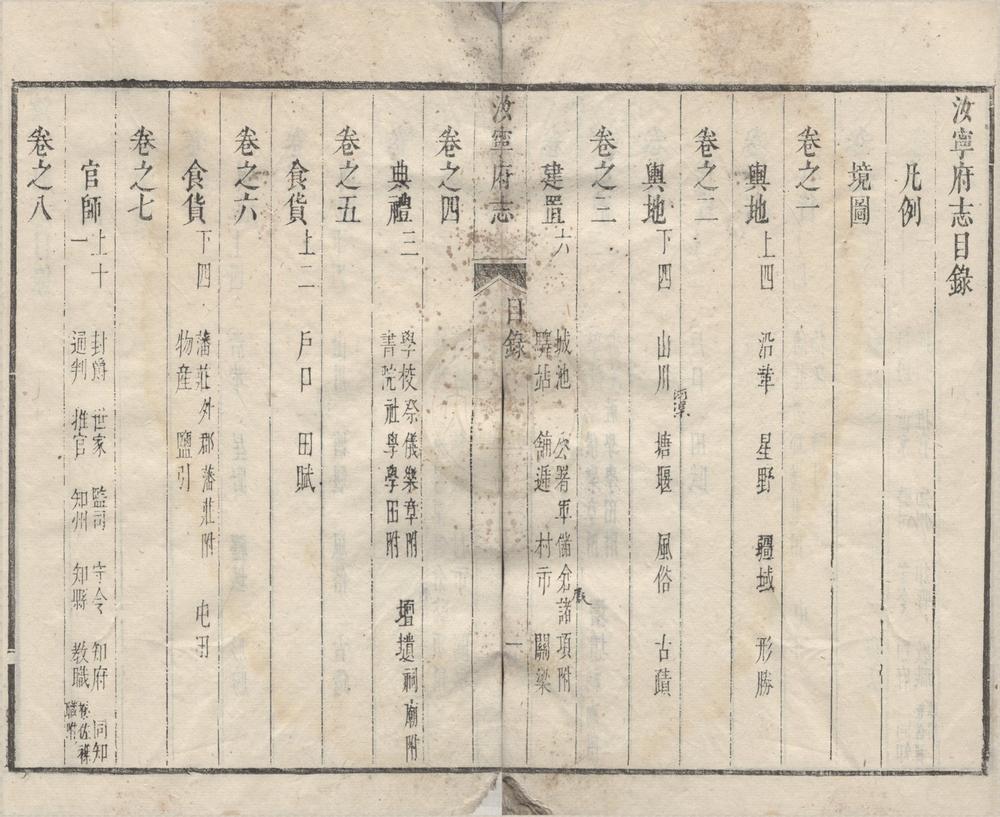 汝寧府志目錄
凡例
境圖
卷之一
輿地上四 沿革 星野 疆域 形勝
卷之二
輿地下四 山川 溝渠 塘堰 風俗 古蹟
卷之三
建置六 城池 公署軍儲倉諸項附
驛站 舖遞 村市 關梁
汝寧府志 目錄 一
卷之四
典禮三 學校祭儀樂章附 壇壝祠廟附
書院社學學田附
卷之五
食貨上二 戶口 田賦
卷之六
食貨下四 藩莊外郡藩莊附 屯田
物產 鹽引
卷之七
官師上十一 封爵 世家 監司 守令 知府 同知
通判 推官 知州 知縣 教職 卷佐裸
職附
卷之八